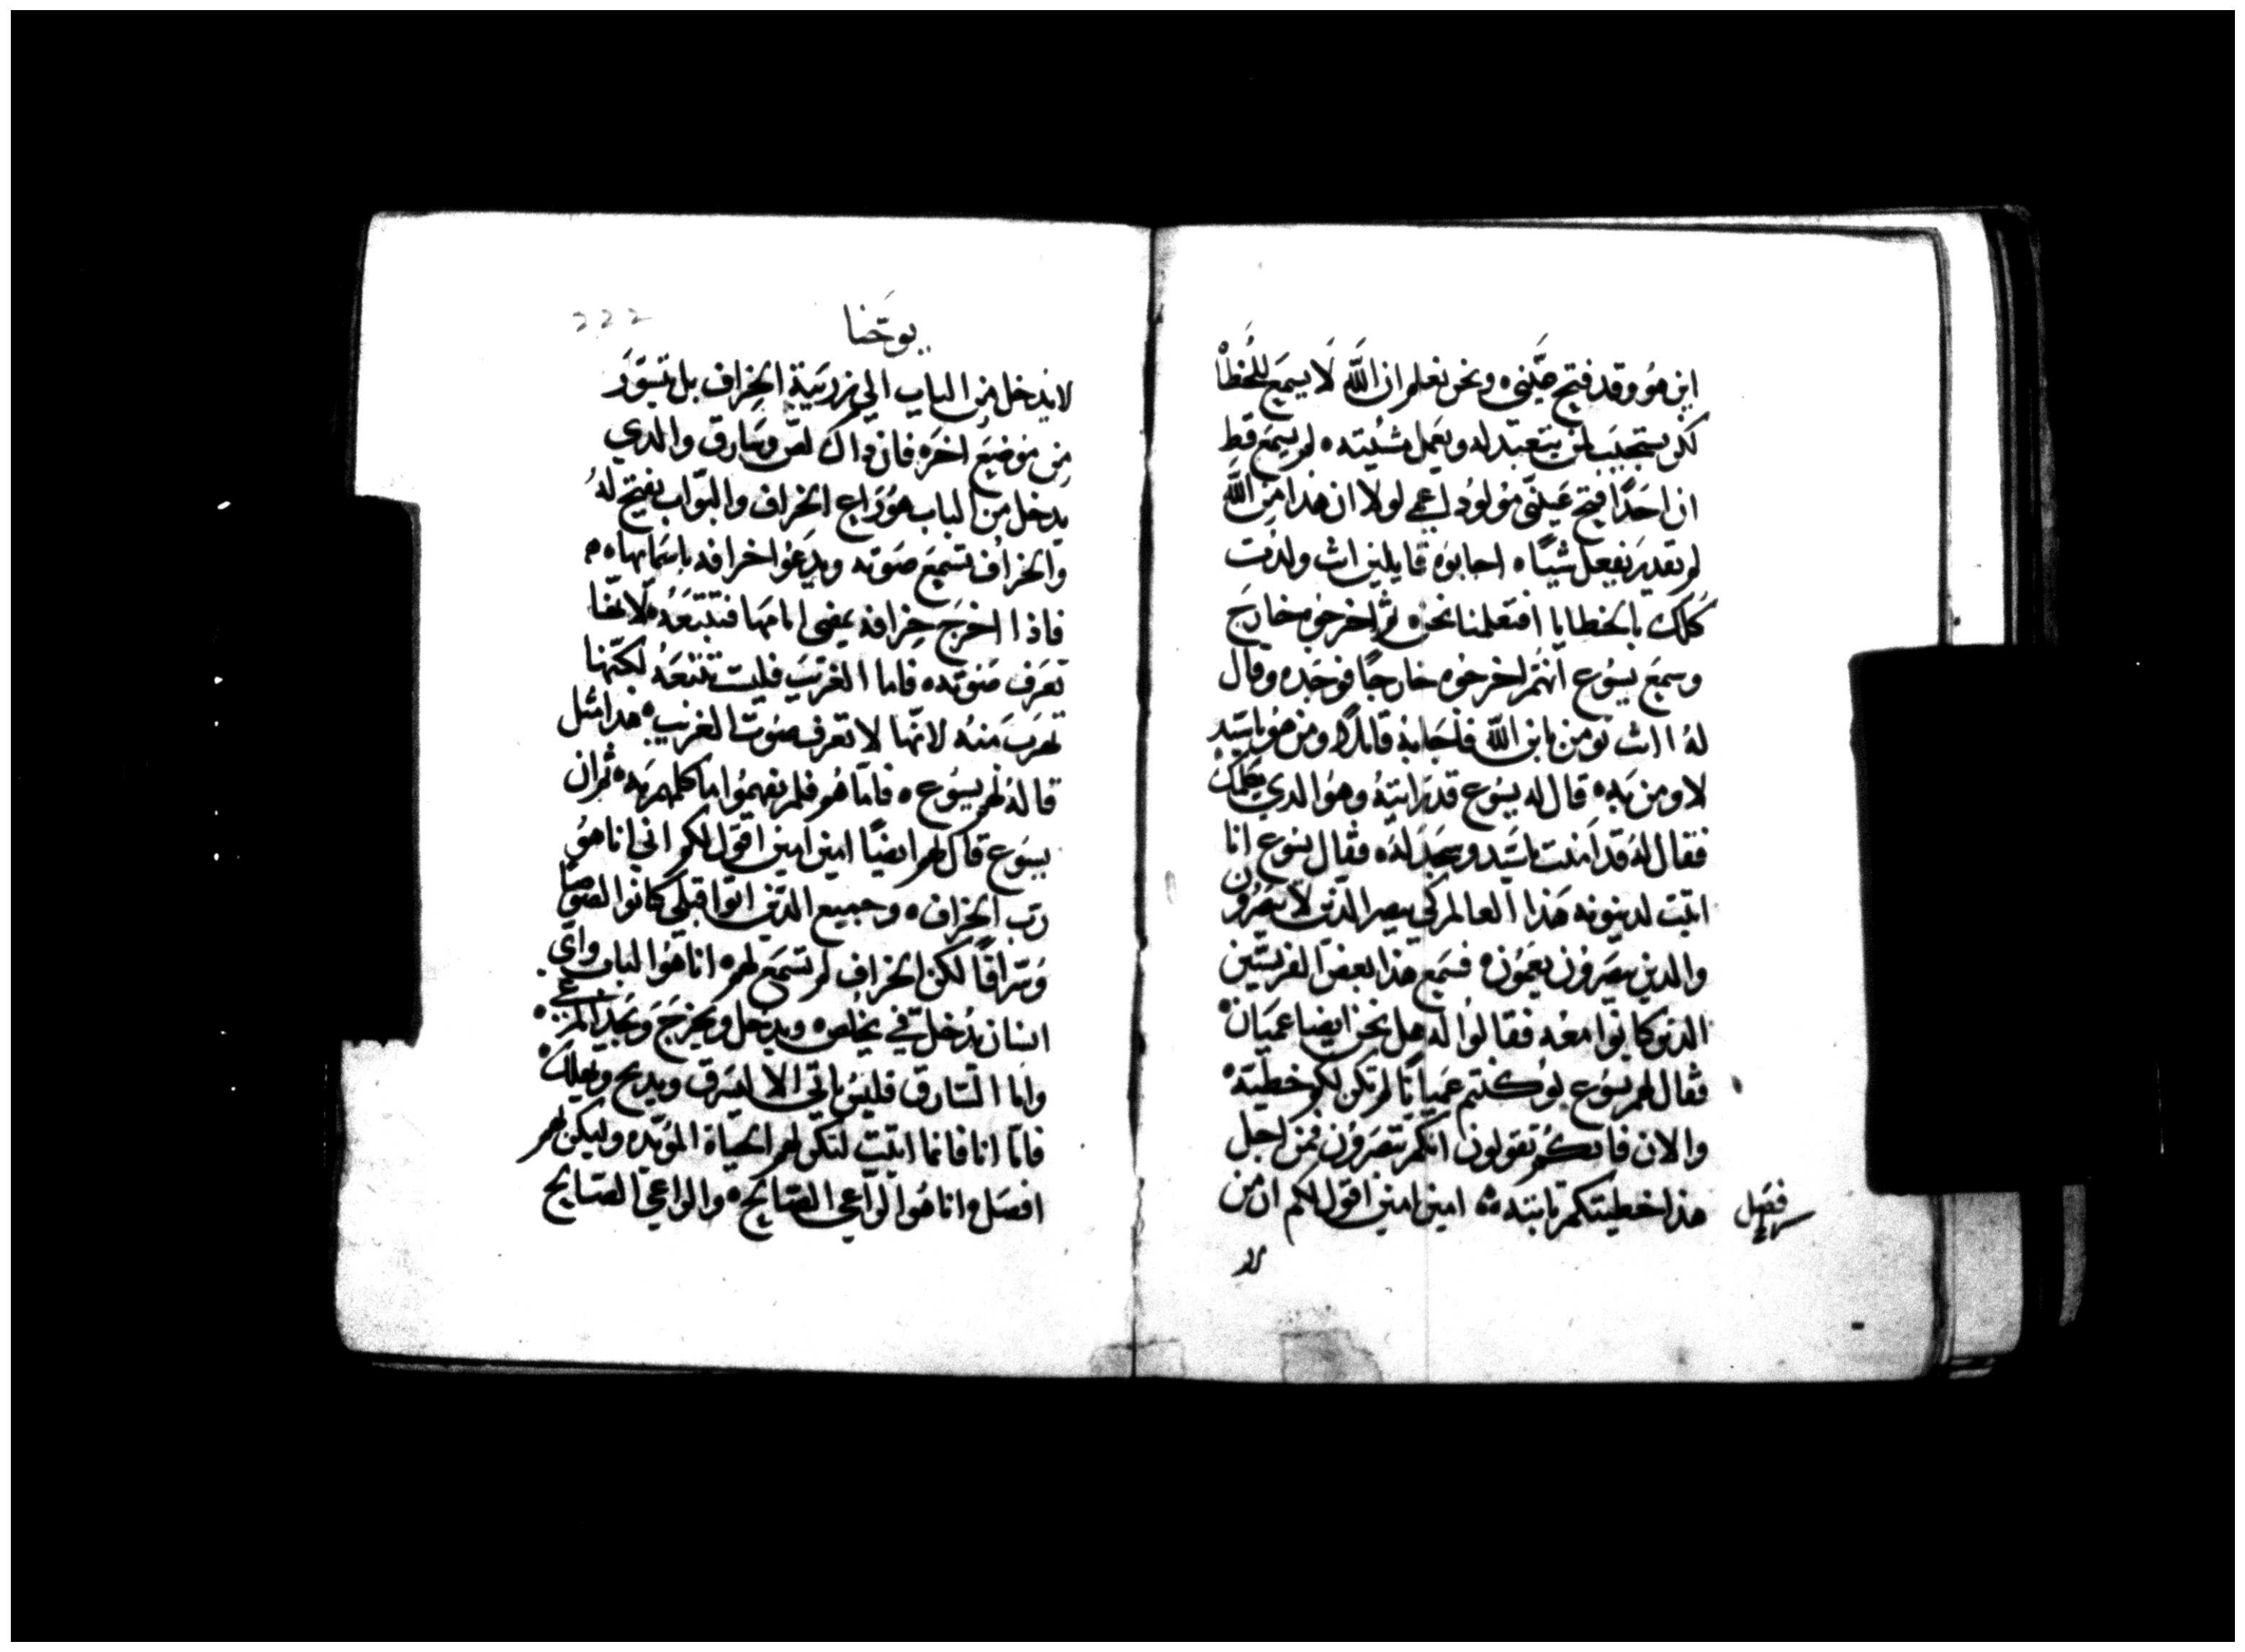 اين هو وقد فتح عينى ٥ ونحن نعلم ان اللّه لا يسمع للخطاْ
لكن يستجيب لمن يتعبد له ويعمل مشيته ٥ لم يسمع قط
ان احدًا فتح عينى مولود اعمى لولا ان هذا من اللّه
لم يقدر يفعل شيًا ٥ اجابوه قايلين انت ولدت
كلك بالخطايا افتعلمنا نحن ٥ ثم اخرجوه خارج
وسمع يسوع انهم اخرجوه خارجًا فوجده وقال
لهُ اانت تومن بابن اللّه فاجابهُ قايلًا ومن هو ياسيد
لاومن به ٥ قال له يسوع قد رايتهُ وهو الدي يكلمك
فقال لهُ قد امنت ياسيد وسجد لهُ ٥ فقال يسوع انا
اتيت لدينونه هذا العالم كي يبصر الدين لا يبصرون
والدين يبصرون يعمون ٥ فسمع هذا بعض الفريسيين
الدين كانوا معه فقالوا له هل نحن ايضا عميان ٥
فقال لهم يسوع لو كنتم عميانًا لم تكن لكم خطيّة ٥
والان فانكم تقولون انكم تبصرون فمن اجل
هذا خطيتكم ثابته ٥٥ امين امين اقول لكم ان من
فصل
لا
222
يوحنا
لا يدخل من الباب الي زريبة الخراف بل تيسوّر
من موضع اخر ٥ فان داك لص وسارق والدي
يدخل من الباب هو راع الخراف والبواب يفتح لهُ
والخراف تسمع صوته ويدعوا خرافه باسمايها ٥٥
فاذا اخرج خرافه يمضى امامها فتتبعه ٥ لانها
تعرف صوته ٥ فاما الغريب فليت تتبعهُ لكنها
تهرب منهُ لانها لا تعرف صوت الغريب ٥ هذا مثل
قالهُ لهم يسوع ٥ فاما هم فلم يفهموا ما كلمهم به ٥ ثم ان
يسوع قال لهم ايضًا امين امين اقول لكم اني انا هو
رب الخراف ٥ وجميع الدين اتوا قبلي كانوا لصوصا
وسراقًا لكن الخراف لم تسمع لهم ٥ انا هو الباب واي
انسان يدخل في يخلص ٥ ويدخل ويخرج ويجد المرعي ٥
واما السارق فليس ياتي الا ليسرق ويدبح ويهلك ٥
فامّا انا فانما اتيت لتكن لهم الحياة الموبّده وليكن لهم
افضل وانا هو الراعي الصالح ٥ والراعي الصالح